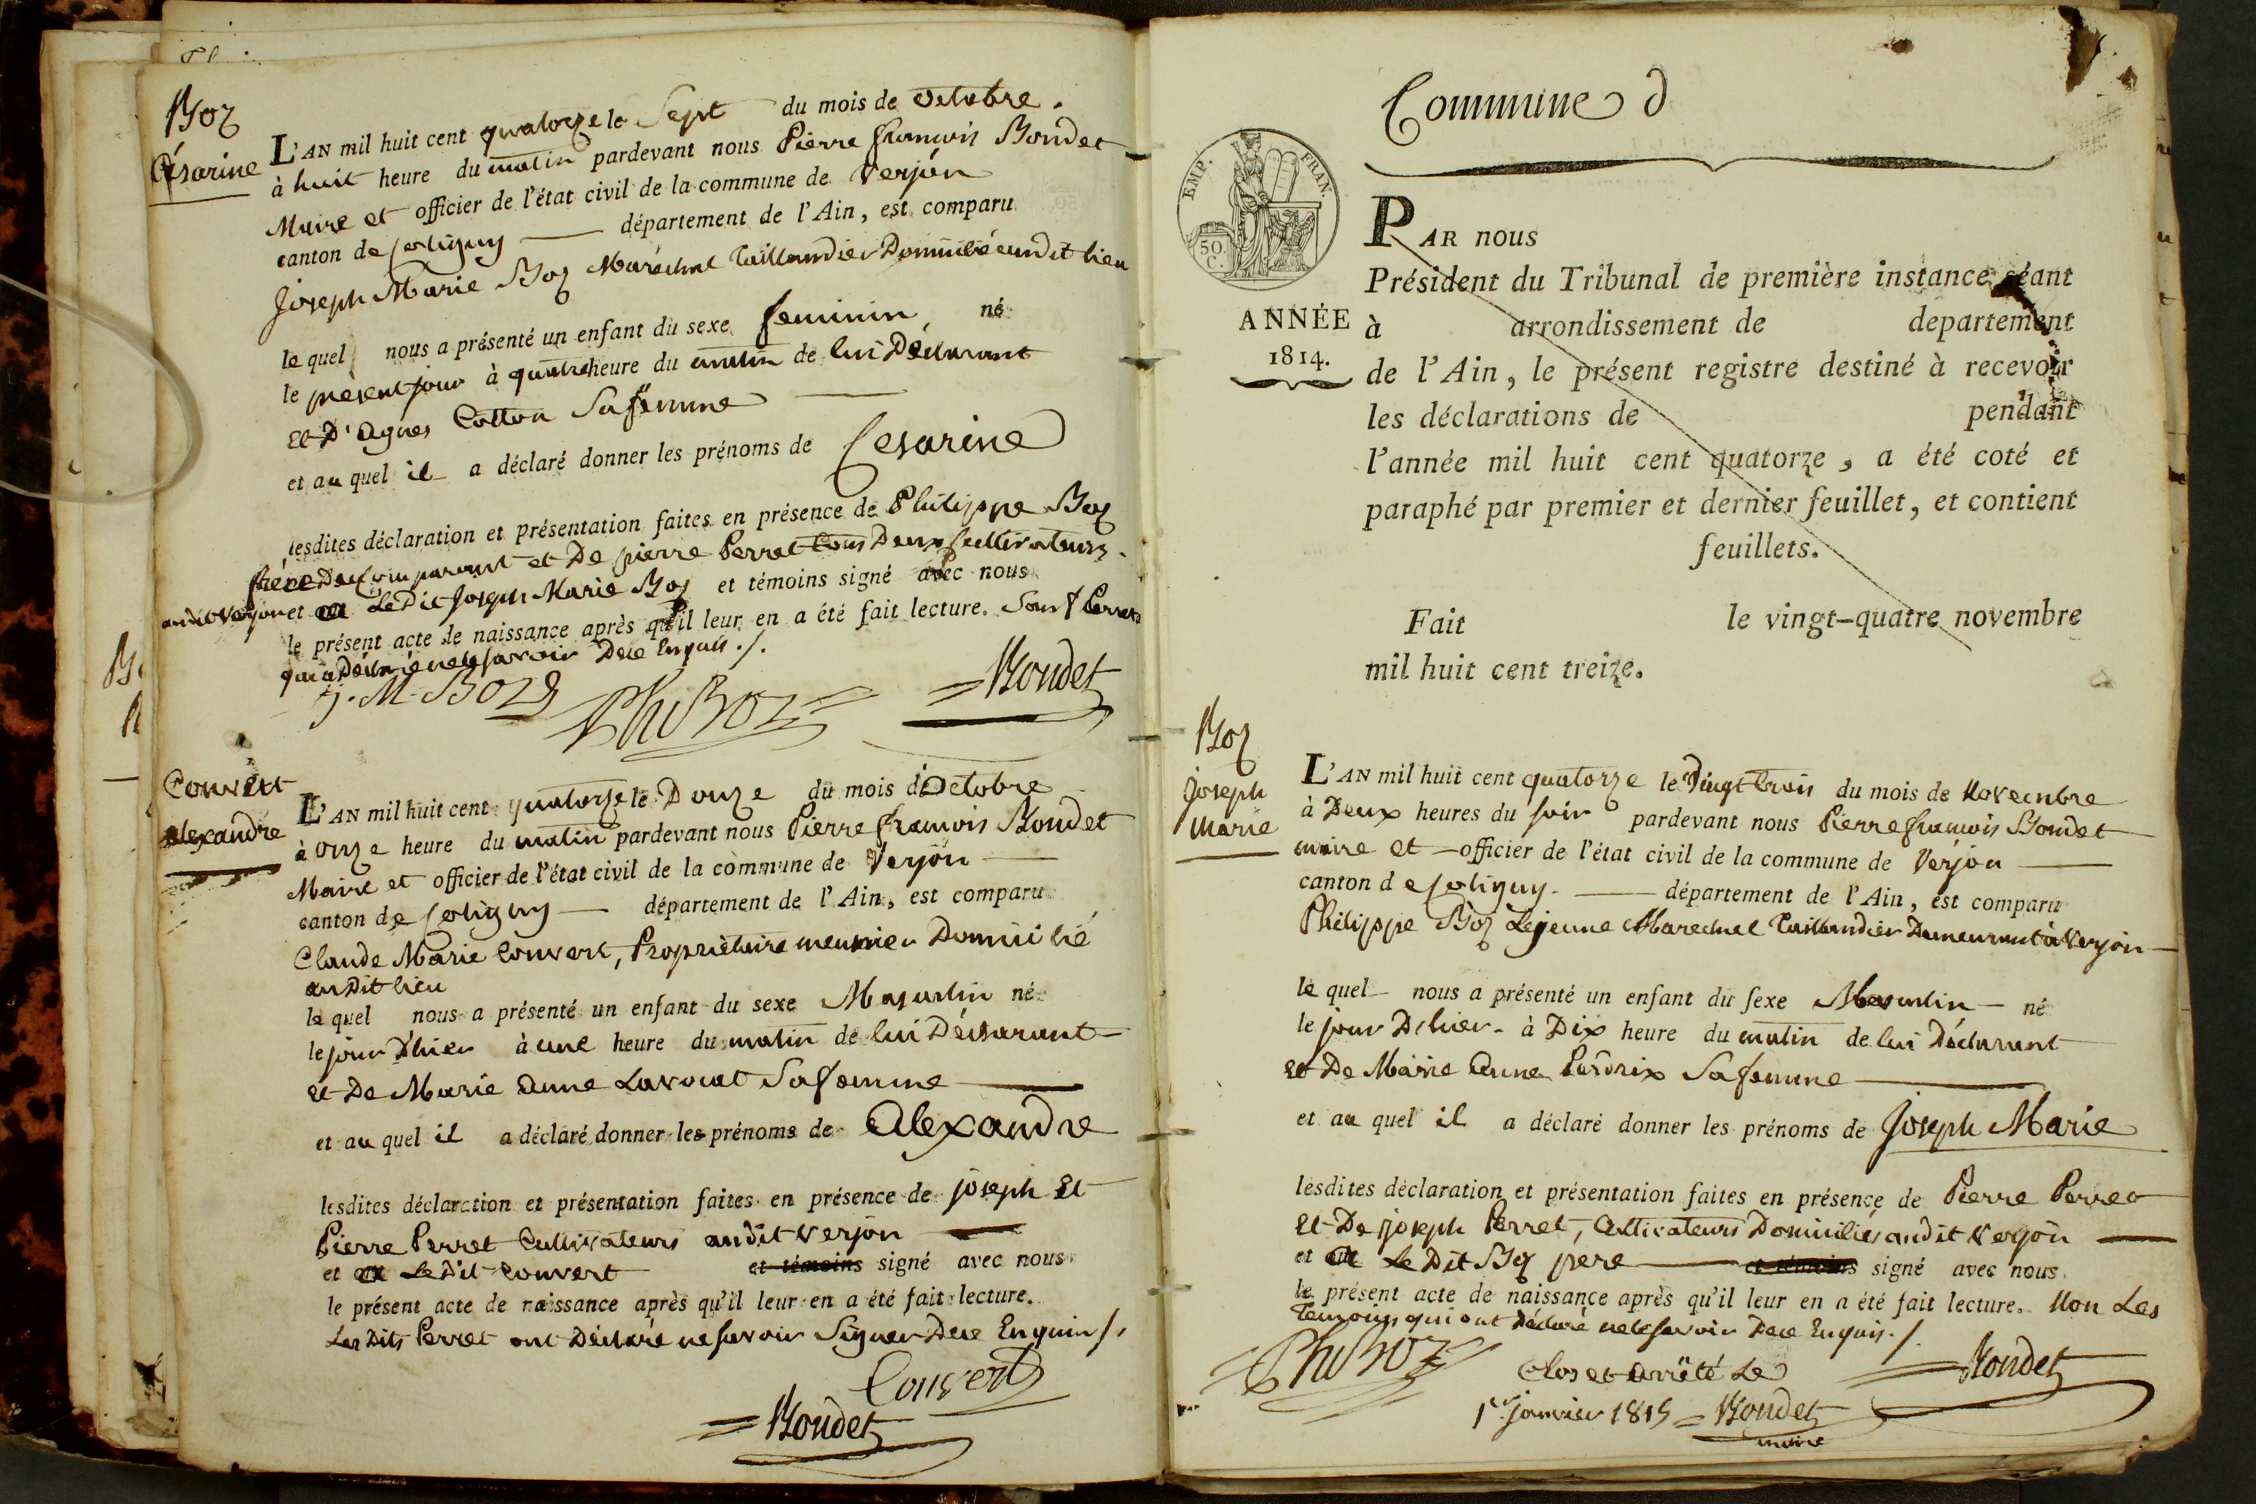 Boz
Césarine
L'AN mil huit cent quatorze le Sept du mois de Octobre.
à huit heure du matin pardevant nous Pierre françois Bondet
Maire et officier de l'état civil de la commune de Verjon
canton de Coligny département de l'Ain, est comparu
Joseph Marie Boz Maréchal Taillandier Domicilié audit lieu
le quel nous a présenté un enfant du sexe feminin né
le présent jour à quatre heure du matin de lui Déclarant
Et D'agnes Cotton Sa femme
et au quel il a déclaré donner les prénoms de Cesarine
lesdites déclaration et présentation faites en présence de Philippe Boz
frére Du Comparant et De pierre Perret tous Deux Cultivateurs
audit Verjon et Le Dit Joseph Marie Boz et témoins signé avec nous
le présent acte de naissance après qu'il leur en a été fait lecture. Sauf Perret
qui a Déclaré ne le savoir De ce Enquis ./.
J. M. BOZ
Ph BOZ
Bondet
Convert
alexandre
L'AN mil huit cent quatorze le Douze du mois d'Octobre
à onze heure du matin pardevant nous Pierre françois Bondet
Maire et officier de l'état civil de la commune de Verjon
canton de Coligny département de l'Ain, est comparu
Claude Marie Convert, Propriétaire meunier Domicilié
au Dit lieu
le quel nous a présenté un enfant du sexe Masculin né
le jour D'hier à une heure du matin de lui Déclarant
et De Marie anne Lavocat Sa femme
et au quel il a déclaré donner les prénoms de Alexandre
lesdites déclaration et présentation faites en présence de Joseph Et
Pierre Perret Cultivateurs audit Verjon
et Le Dit Convert et témoins signé avec nous
le présent acte de naissance après qu'il leur en a été fait lecture.
Les Dits Perret ont Déclaré ne savoir Signer De ce Enquis /.
Convert
Bondet
Commune d
EMP. FRAN.
50 C.
ANNÉE
1814.
PAR nous
Président du Tribunal de première instance séant
à arrondissement de departement
de l'Ain, le présent registre destiné à recevoir
les déclarations de pendant
l'année mil huit cent quatorze, a été coté et
paraphé par premier et dernier feuillet, et contient
feuillets.
Fait le vingt-quatre novembre
mil huit cent treize.
Boz
Joseph
Marie
L'AN mil huit cent quatorze le Vingt trois du mois de Novembre
à Deux heures du soir pardevant nous Pierre françois Bondet
maire et officier de l'état civil de la commune de Verjon
canton de Coligny département de l'Ain, est comparu
Philippe Boz Le jeune Marechal Taillandier Demeurant à Verjon
le quel nous a présenté un enfant du sexe Masculin né
le jour D'hier à Dix heure du matin de lui Déclarant
et De Marie Anne Perdrix Sa femme
et au quel il a déclaré donner les prénoms de Joseph Marie
lesdites déclaration et présentation faites en présence de Pierre Perret
Et De joseph Perret, Cultivateurs Domiciliés audit Verjon
et Le Dit Boz pere et témoins signé avec nous
le présent acte de naissance après qu'il leur en a été fait lecture. Non Les
Temoins qui ont Déclaré ne le savoir De ce Enquis ./.
Ph BOZ
Clos et arrêté Le
1er janvier 1815 Bondet
maire
Bondet